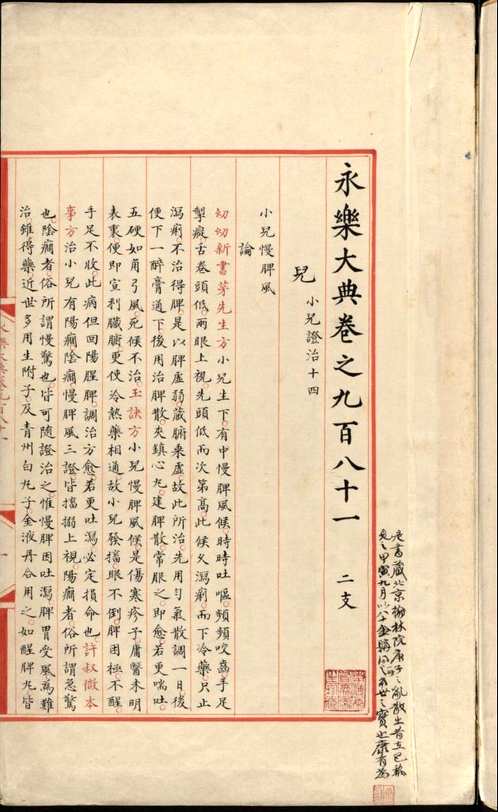 永樂大典卷之九百八十一 二支
兒 小兒證治十四
小兒慢脾風
論
幼幼新書茅先生方小兒生下有中慢脾風候時時吐嘔頻頻咬齒手足
掣瘲舌卷頭低兩眼上視先頭低而次第高此候久瀉痢而下冷藥只止
瀉痢不治得脾是以脾虛弱藏腑乘虛故此所治先用勻氣散調一日後
便下一醉膏通下後用治脾散夾鎮心丸建脾散常服之即愈若更喘吐
五硬如角弓風死候不治玉訣方小兒慢脾風候是傷寒疹子庸醫未明
表裏便即宣利臟腑更使冷熱藥相通故小兒發搐眼不倒脾困極不醒
手足不收此病但回陽醒脾調治方愈若更吐瀉必定損命也許叔微本
事方治小兒有陽癎陰癎慢脾風三證皆搐搦上視陽癎者俗所謂急驚
也陰癎者俗所謂慢驚也皆可隨證治之惟慢脾因吐瀉脾胃受風為難
治雖得藥近世多用生附子及青州白丸子金液丹合用之如醒脾丸皆
是書藏北京翰林院庚子之亂散出
甲寅九月以 金 之寶也康有為